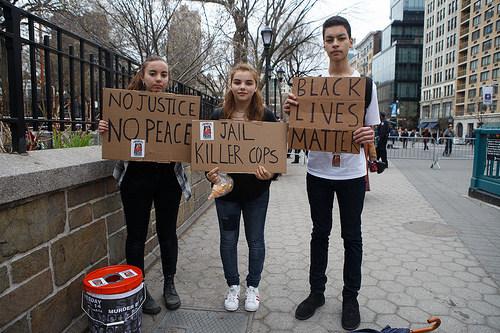 NO JUSTICE
NO PEACE
JAIL
KILLER COPS
BLACK
LIVES
MATTER
MURDER